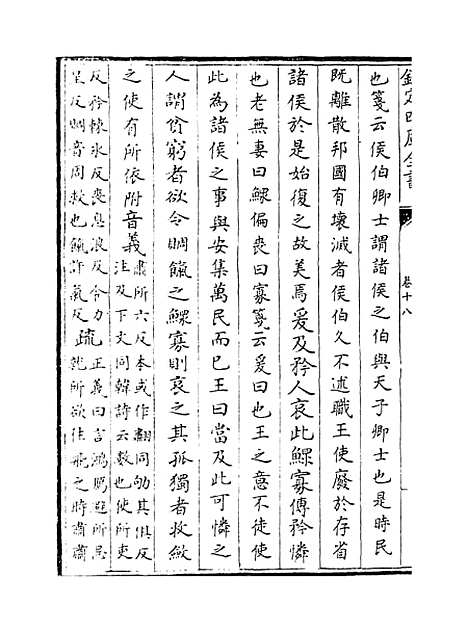 欽定四庫全書
卷十八
也箋云侯伯卿士謂諸侯之伯與天子卿士也是時民
既離散邦國有壞滅者侯伯久不述職王使廢於存省
諸侯於是始復之故美焉爰及矜人哀此鰥寡傳矜憐
也老無妻曰鰥偏喪曰寡箋云爰曰也王之意不徒使
此為諸侯之事與安集萬民而已王曰當及此可憐之
人謂貧窮者欲令賙餼之鰥寡則哀之其孤獨者收斂
之使有所依附音義
肅所六反本或作翻同劬其俱反
注及下文同韓詩云數也使所吏
反矜棘冰反喪息浪反令力
呈反賙音周救也餼許氣反
疏
正義曰言鴻鴈避所忌
就所欲往飛之時肅肅